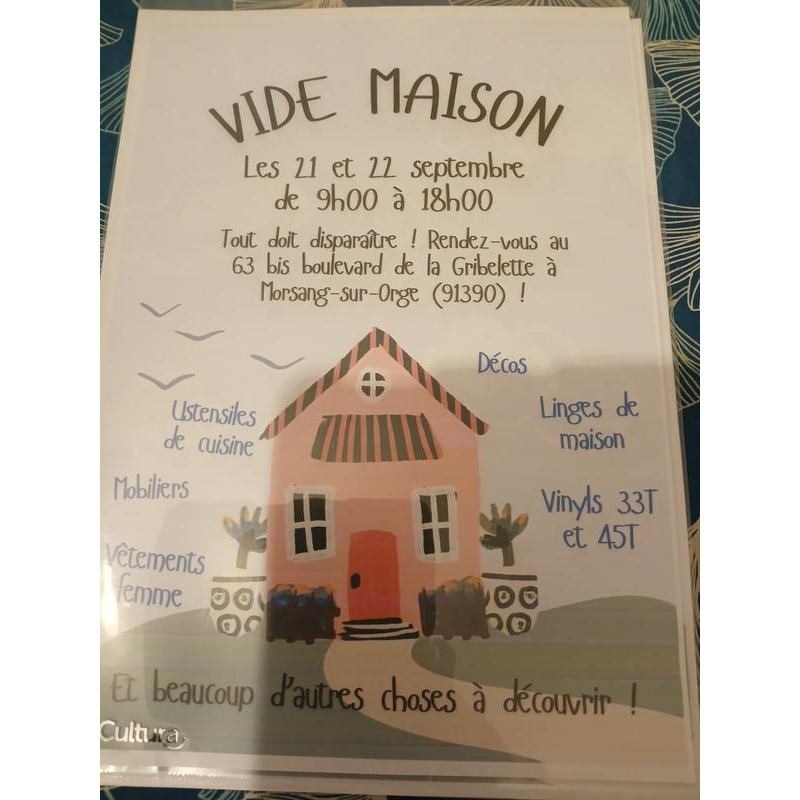 VIDE MAISON
Les 21 et 22 septembre
de 9h00 à 18h00
Tout doit disparaître ! Rendez-vous au
63 bis boulevard de la Gribelette à
Morsang-sur-Orge (91390) !
Décos
Ustensiles
de cuisine
Linges de
maison
Mobiliers
Vinyls 33T
et 45T
Vêtements
femme
Et beaucoup d'autres choses à découvrir !
Cultura